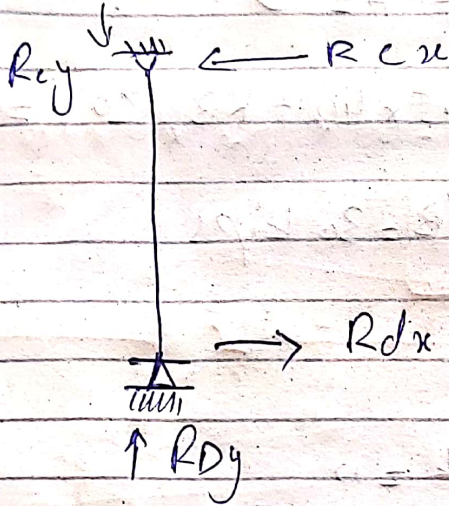 Rcy
Rcx
Rdx
RDy